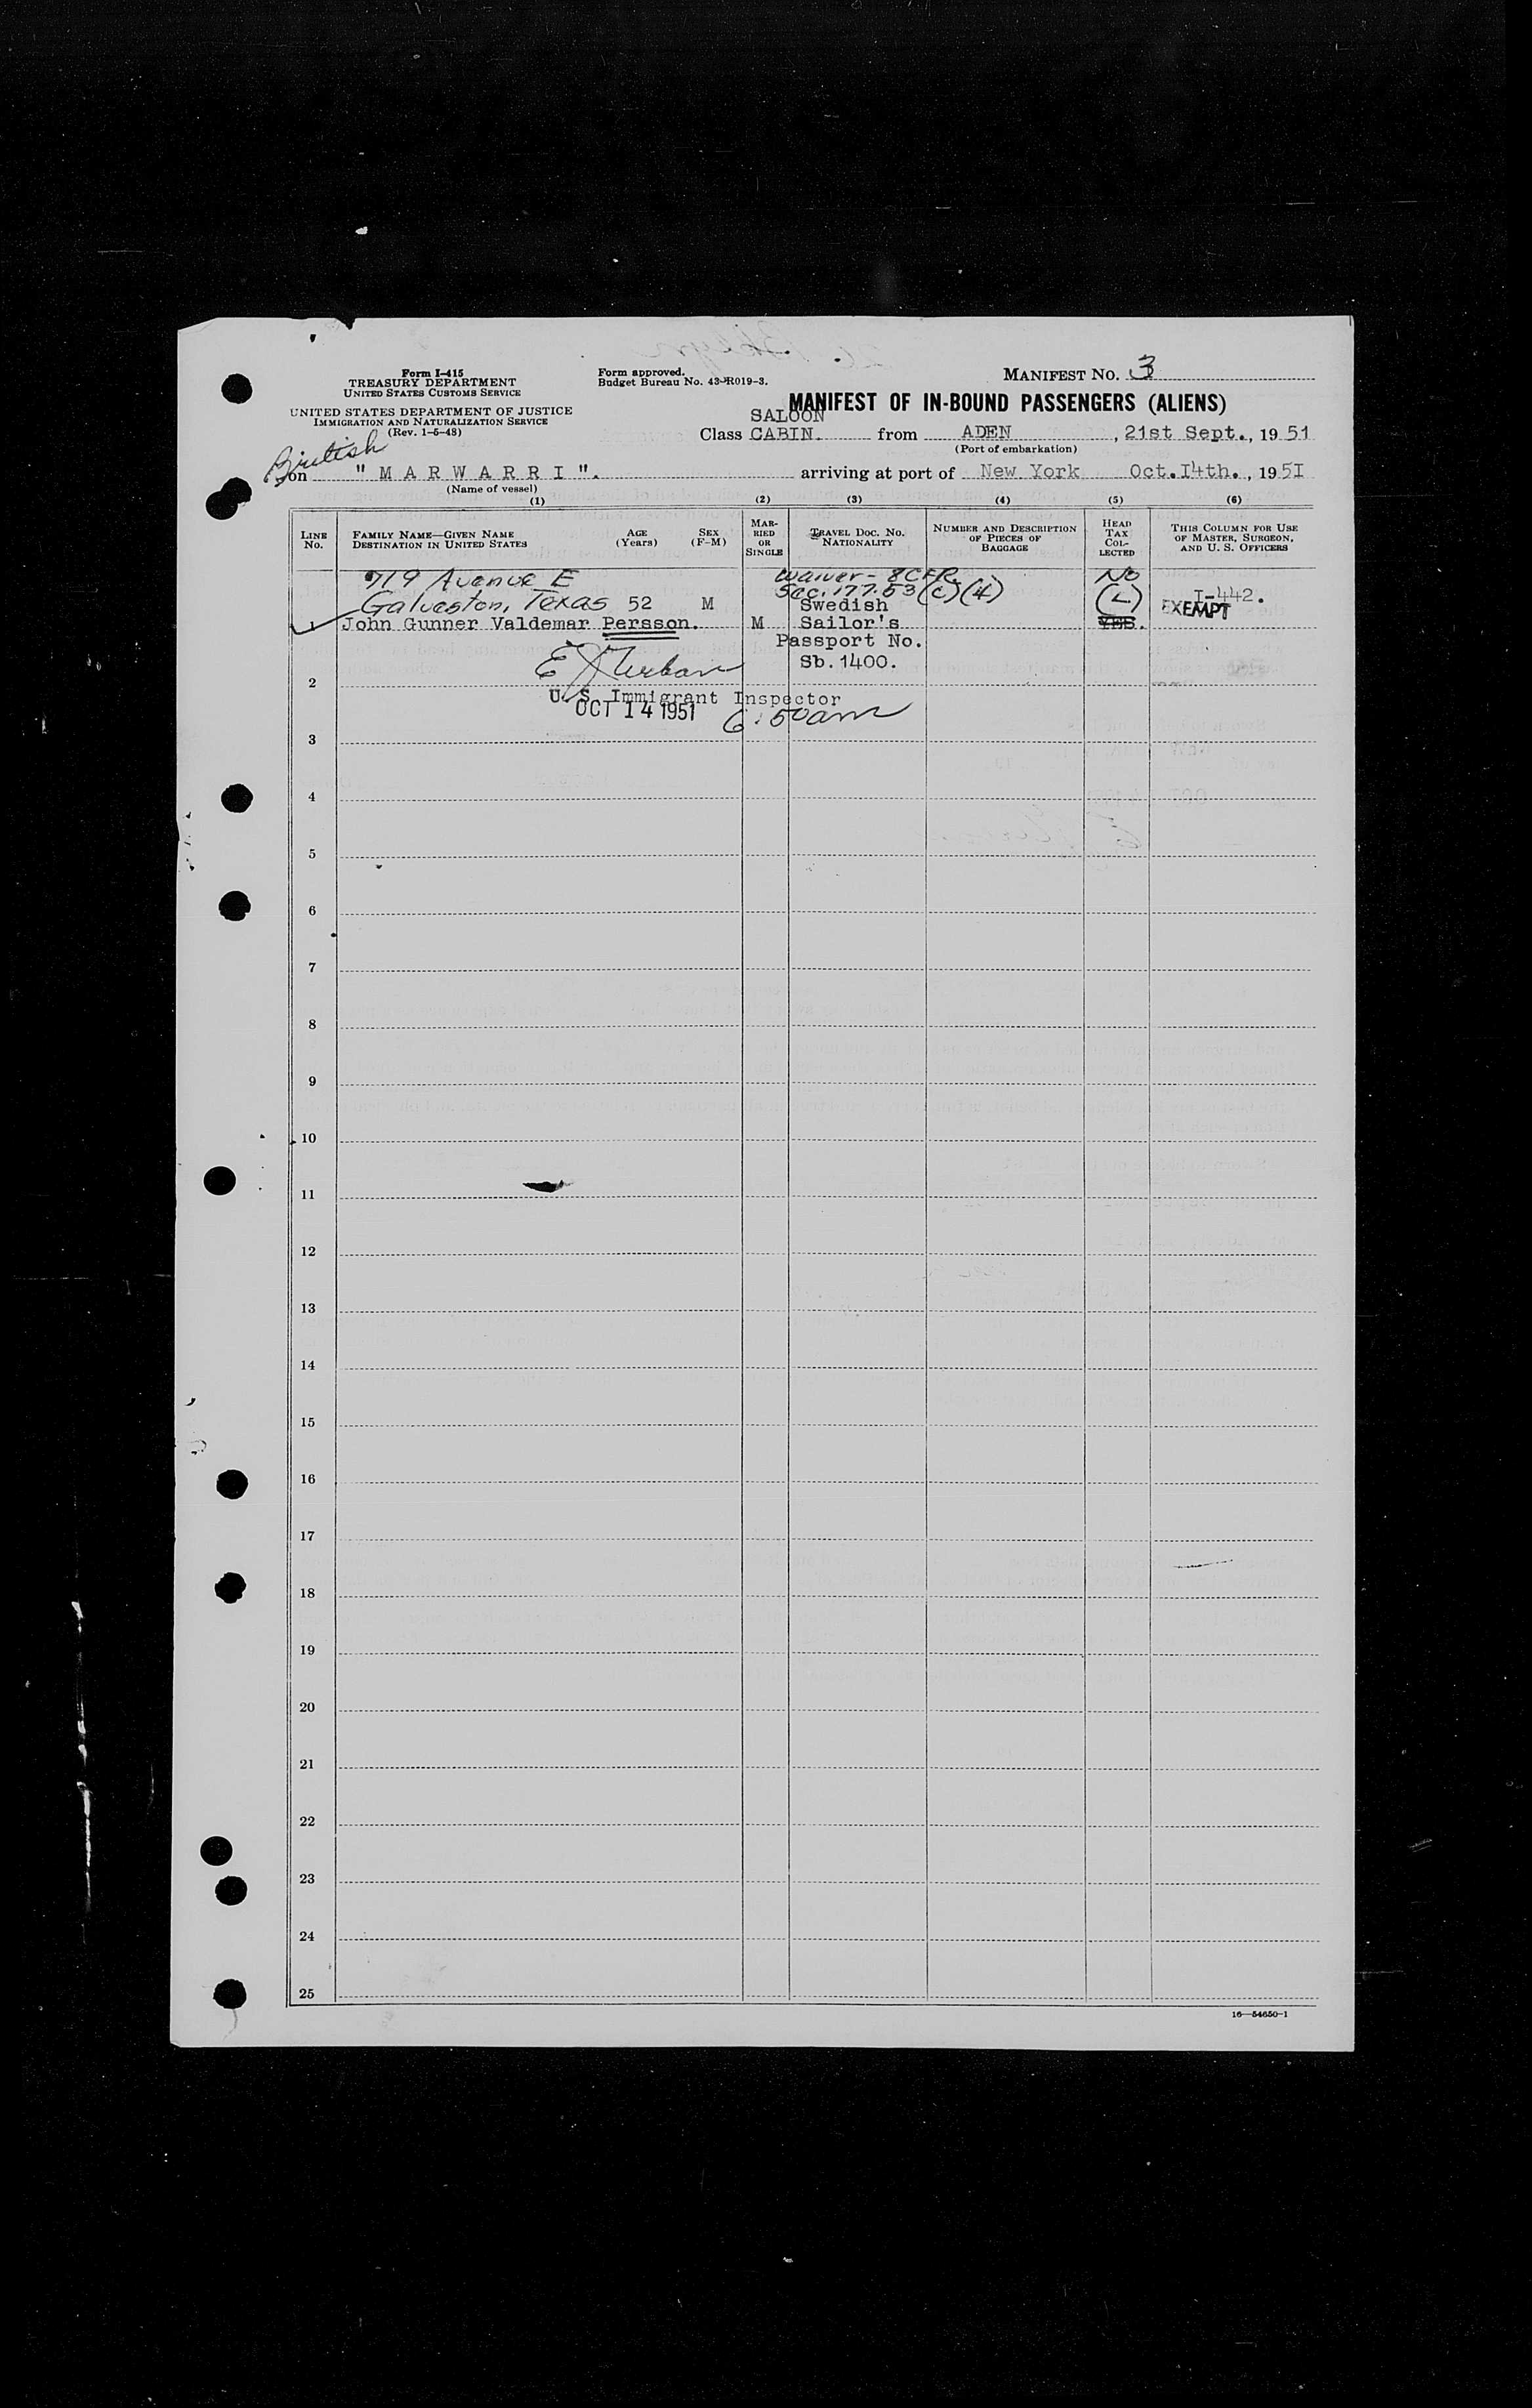 Form I-415
TREASURY DEPARTMENT
UNITED STATES CUSTOMS SERVICE
UNITED STATES DEPARTMENT OF JUSTICE
IMMIGRATION AND NATURALIZATION SERVICE
(Rev. 1-5-48)
Form approved.
Budget Bureau No. 43-R019-3.
MANIFEST NO. 3
MANIFEST OF IN-BOUND PASSENGERS (ALIENS)
SALOON
Class CABIN. from ADEN, 21st Sept., 1951
(Port of embarkation)
British
on "MARWARRI". arriving at port of New York Oct.I4th., 195I
(Name of vessel)
(1) (2) (3) (4) (5) (6)
LINE No. FAMILY NAME—GIVEN NAME DESTINATION IN UNITED STATES AGE (Years) SEX (F-M) MARRIED OR SINGLE TRAVEL DOC. NO. NATIONALITY NUMBER AND DESCRIPTION OF PIECES OF BAGGAGE HEAD TAX COLLECTED THIS COLUMN FOR USE OF MASTER, SURGEON, AND U. S. OFFICERS
719 Avenue E Waiver - 8CFR No
Galveston, Texas 52 M Sec. 177.53(c)(4) I-442.
Swedish EXEMPT
1 John Gunner Valdemar Persson. M Sailor's YES.
Passport No.
Sb.1400.
2
U. S. Immigrant Inspector
OCT 14 1951 6:50am
3
4
5
6
7
8
9
10
11
12
13
14
15
16
17
18
19
20
21
22
23
24
25
16—54650-1